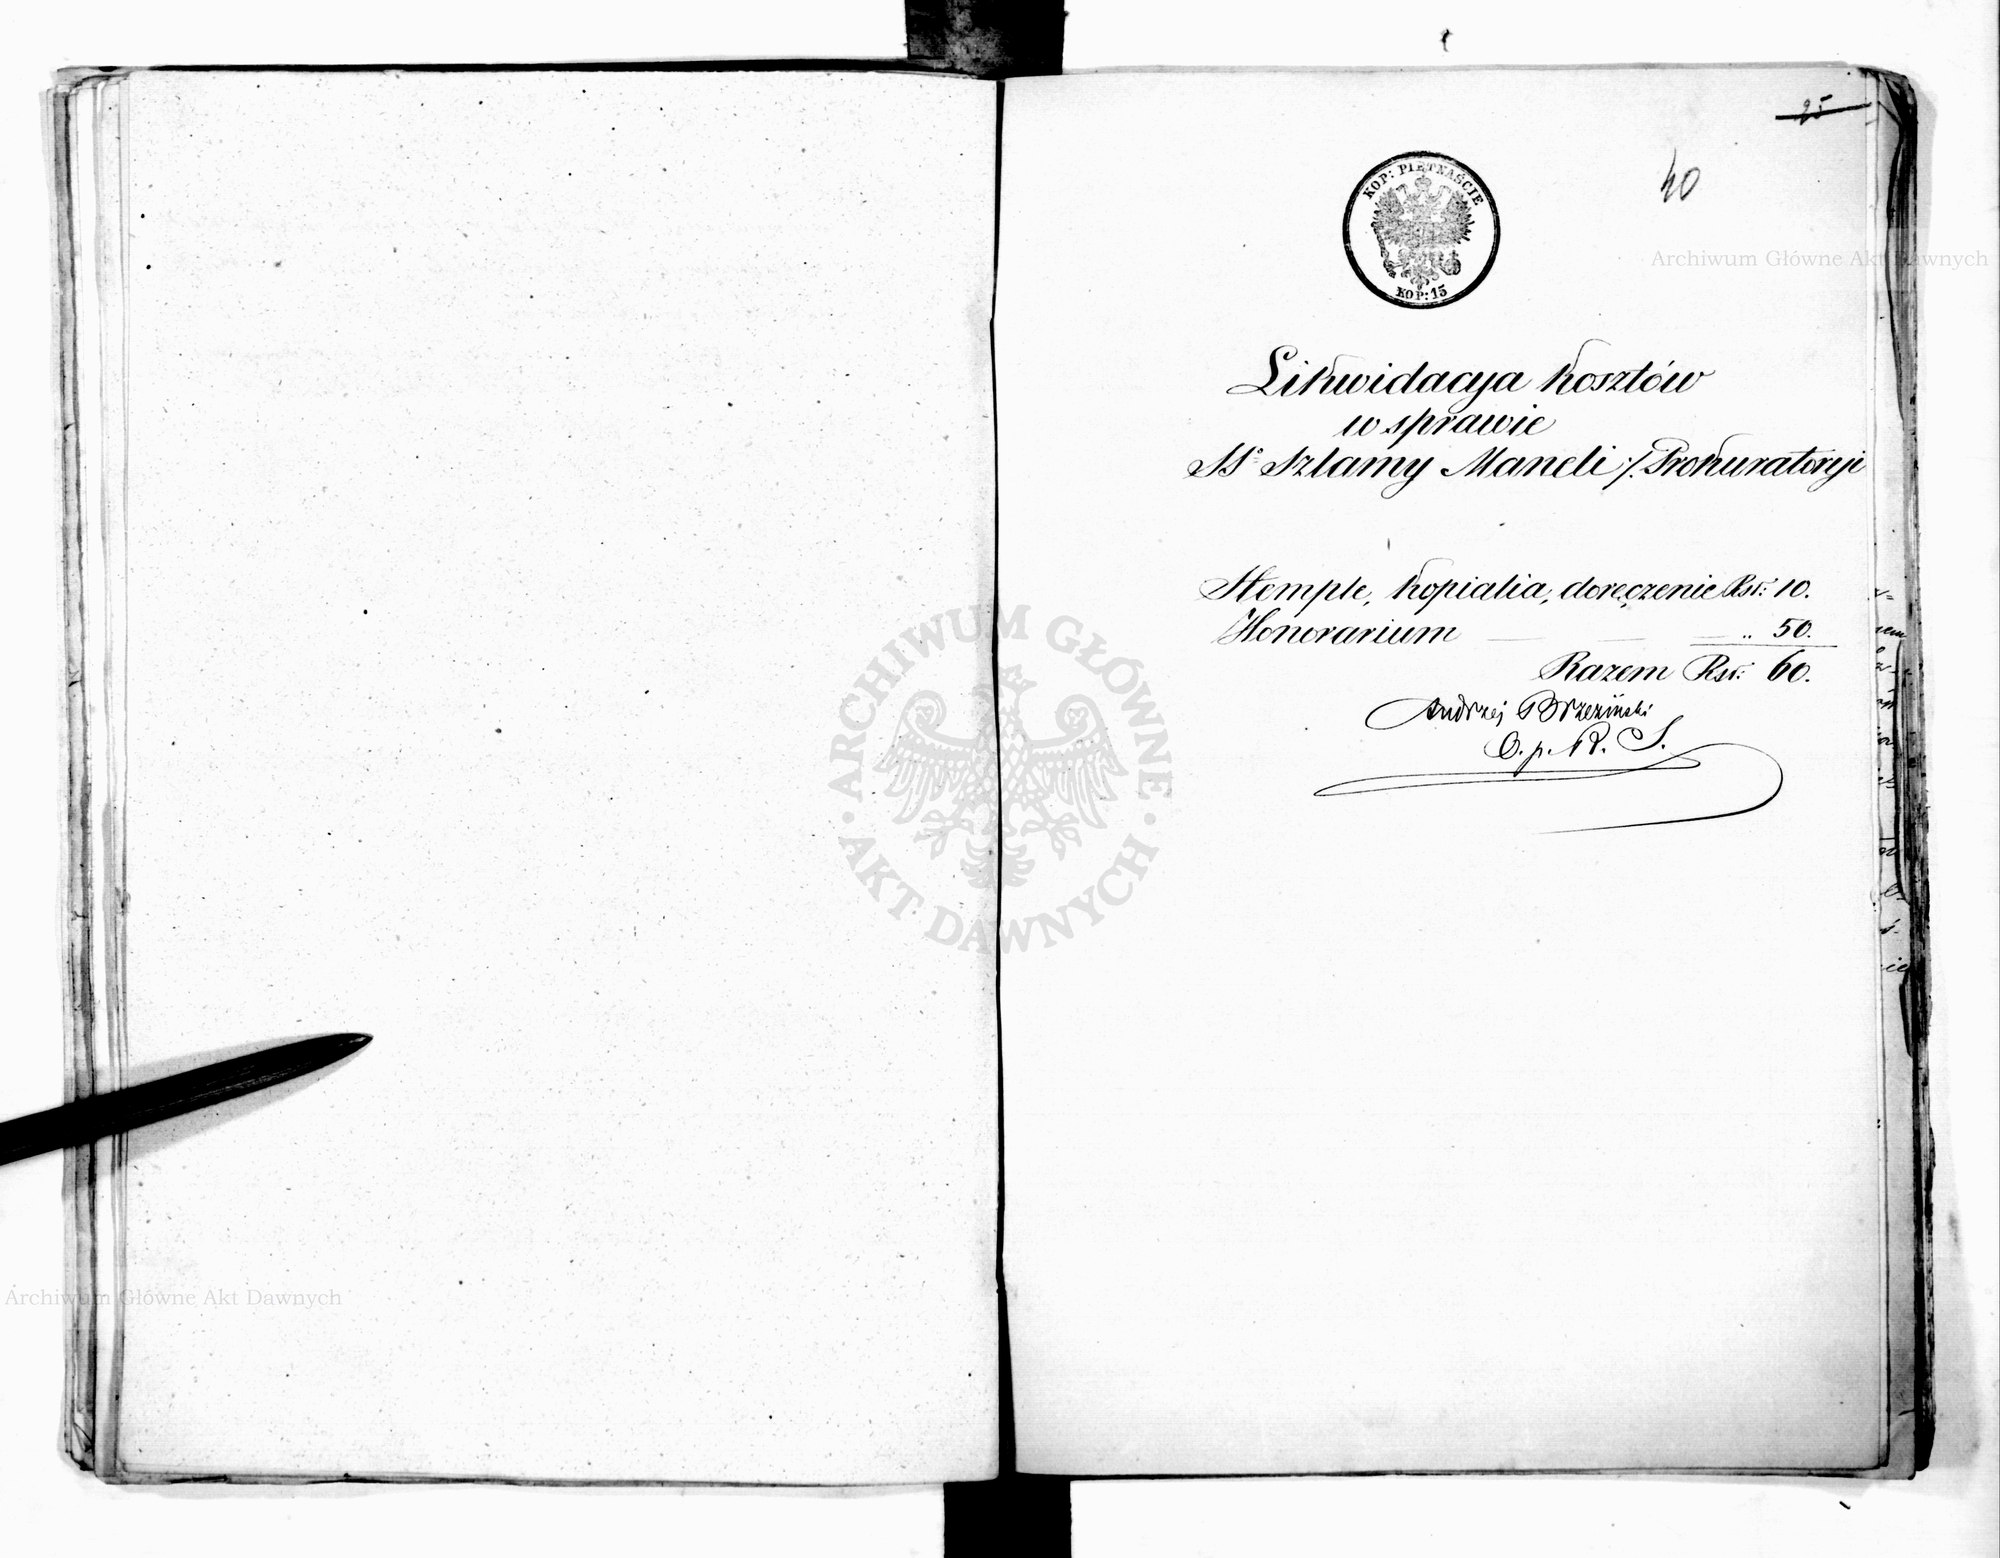 25
40
KOP: PIĘTNAŚCIE
KOP: 15
Archiwum Główne Akt Dawnych
Likwidacya kosztów
w sprawie
Ss. Szlamy Maneli ./. Prokuratoryi
Stemple, kopialia, doręczenie Rsr: 10.
Honorarium — — — „ 50.
Razem Rsr: 60.
Andrzej Brzeziński
O. p. R. S.
ARCHIWUM GŁÓWNE
· AKT DAWNYCH ·
Archiwum Główne Akt Dawnych